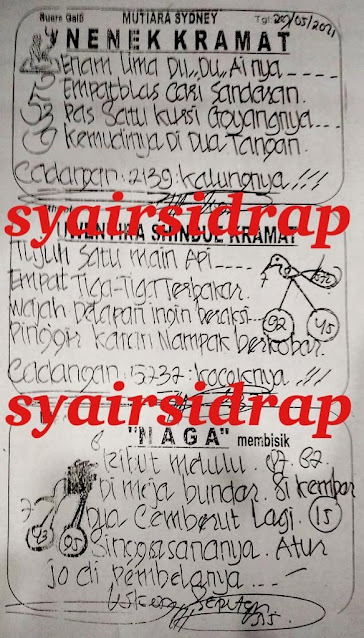 Suara Gaib MUTIARA SYDNEY Tgl: 20/05/2021
NENEK KRAMAT
Enam Lima Du,,Du,,Ainya ----
Empatblas cari Sandaran.
Pas Satu kursi Goyangnya---
Kemudinya Di Dua Tangan.
Cadangan: 2139: Kalungnya !!!
syairsidrap
SHINDUE KRAMAT
Tujuh Satu main Api ----
7
Empat Tiga-Tiga Terbakar.
Wajah Delapan ingin beraksi---
92 45
Pinggir Kanan Nampak berkobar.
Cadangan: 15737: Kocoknya !!!
syairsidrap
"NAGA" membisik
8
Ribut melulu. 87
Di meja bundar. Si kembar
7
Dua Cemberut Lagi. 15
43 95
Singgasananya. Atur
jo di pembelanya ---